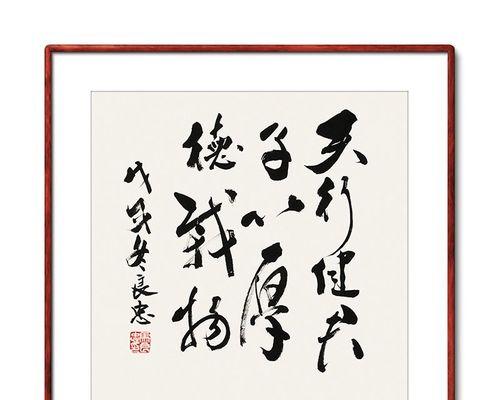 天行健君
子以厚
德載物
戊戌冬良忠